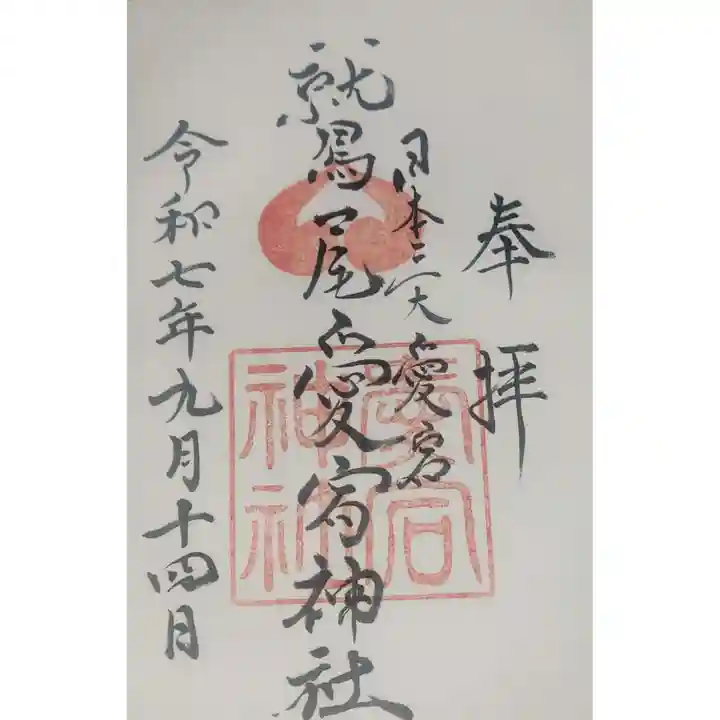 奉拝
日本三大愛宕
鷲尾愛宕神社
愛宕神社
令和七年九月十四日